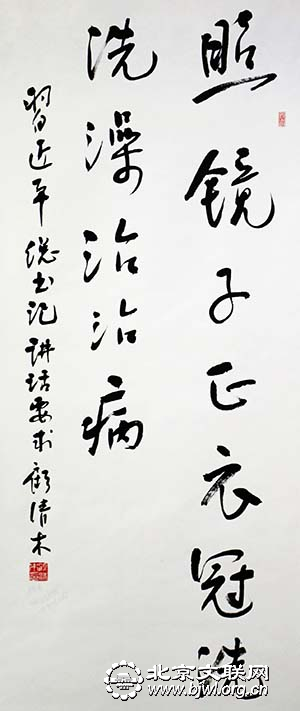 照镜子正衣冠洗
洗澡治治病
習近平总书记讲话要求 顾清木
北京文联网
www.bjwl.org.cn